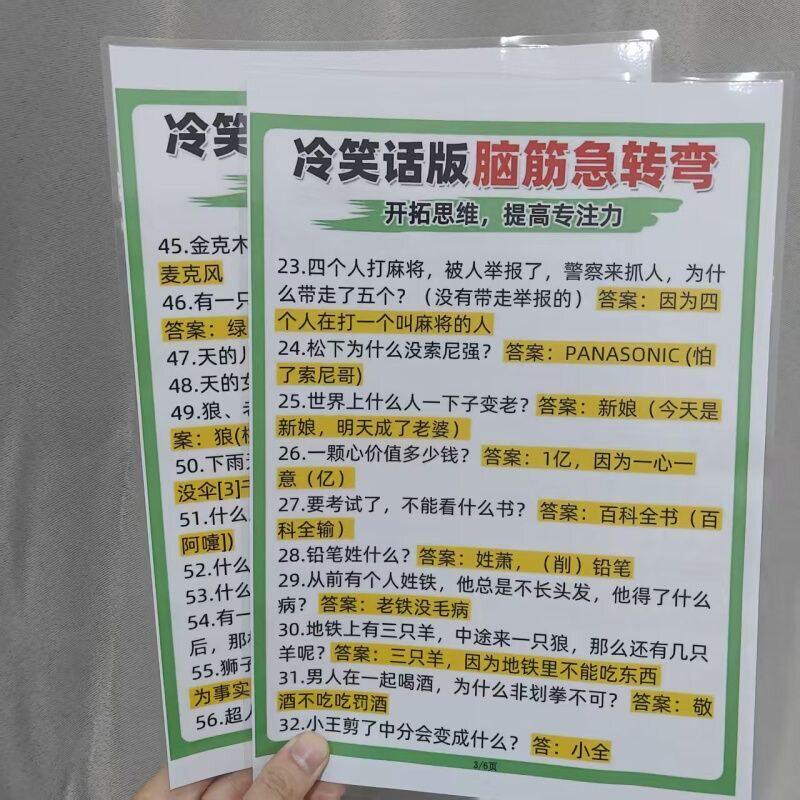 冷笑
45.金克木
麦克风
46.有一只
答案：绿
47.天的儿
48.天的女
49.狼、老
案：狼(桃
50.下雨天
没伞[3]千
51.什么
阿嚏])
52.什么
53.什么
54.有一
后，那
55.狮子
为事实
56.超人
冷笑话版脑筋急转弯
开拓思维，提高专注力
23.四个人打麻将，被人举报了，警察来抓人，为什
么带走了五个？（没有带走举报的）答案：因为四
个人在打一个叫麻将的人
24.松下为什么没索尼强？ 答案：PANASONIC (怕
了索尼哥)
25.世界上什么人一下子变老？答案：新娘（今天是
新娘，明天成了老婆）
26.一颗心价值多少钱？ 答案：1亿，因为一心一
意（亿）
27.要考试了，不能看什么书？ 答案：百科全书（百
科全输）
28.铅笔姓什么？答案：姓萧，（削）铅笔
29.从前有个人姓铁，他总是不长头发，他得了什么
病？ 答案：老铁没毛病
30.地铁上有三只羊，中途来一只狼，那么还有几只
羊呢？ 答案：三只羊，因为地铁里不能吃东西
31.男人在一起喝酒，为什么非划拳不可？ 答案：敬
酒不吃吃罚酒
32.小王剪了中分会变成什么？ 答：小全
3/6页